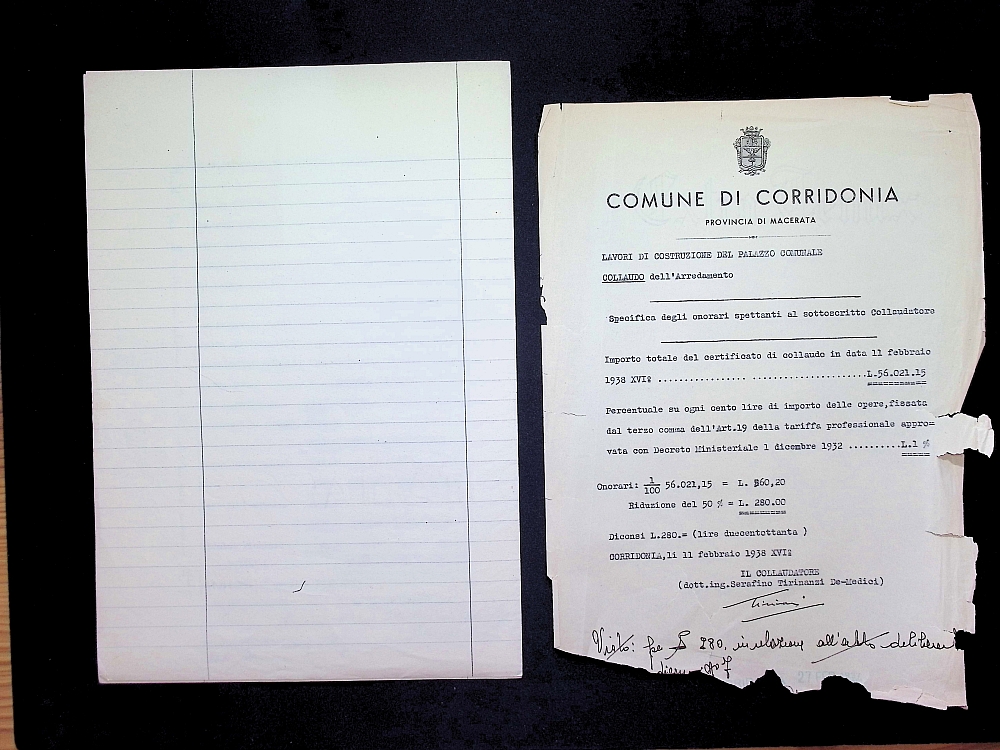 COMUNE DI CORRIDONIA
PROVINCIA DI MACERATA
LAVORI DI COSTRUZIONE DEL PALAZZO COMUNALE
COLLAUDO dell'Arredamento
Specifica degli onorari spettanti al sottoscritto Collaudatore
Importo totale del certificato di collaudo in data 11 febbraio
1938 XVIº ................ .....................L.56.021.15
Percentuale su ogni cento lire di importo delle opere,fissata
dal terzo comma dell'Art.19 della tariffa professionale appro=
vata con Decreto Ministeriale 1 dicembre 1932 ..........L.1 %
Onorari: 1/100 56.021,15 = L. 560,20
Riduzione del 50 % = L. 280.00
Diconsi L.280.= (lire duecentottanta )
CORRIDONIA,li 11 febbraio 1938 XVIº
IL COLLAUDATORE
(dott.ing.Serafino Tirinanzi De-Medici)
Tirinanzi
Visto: per £ 280. in relazione all'atto
27